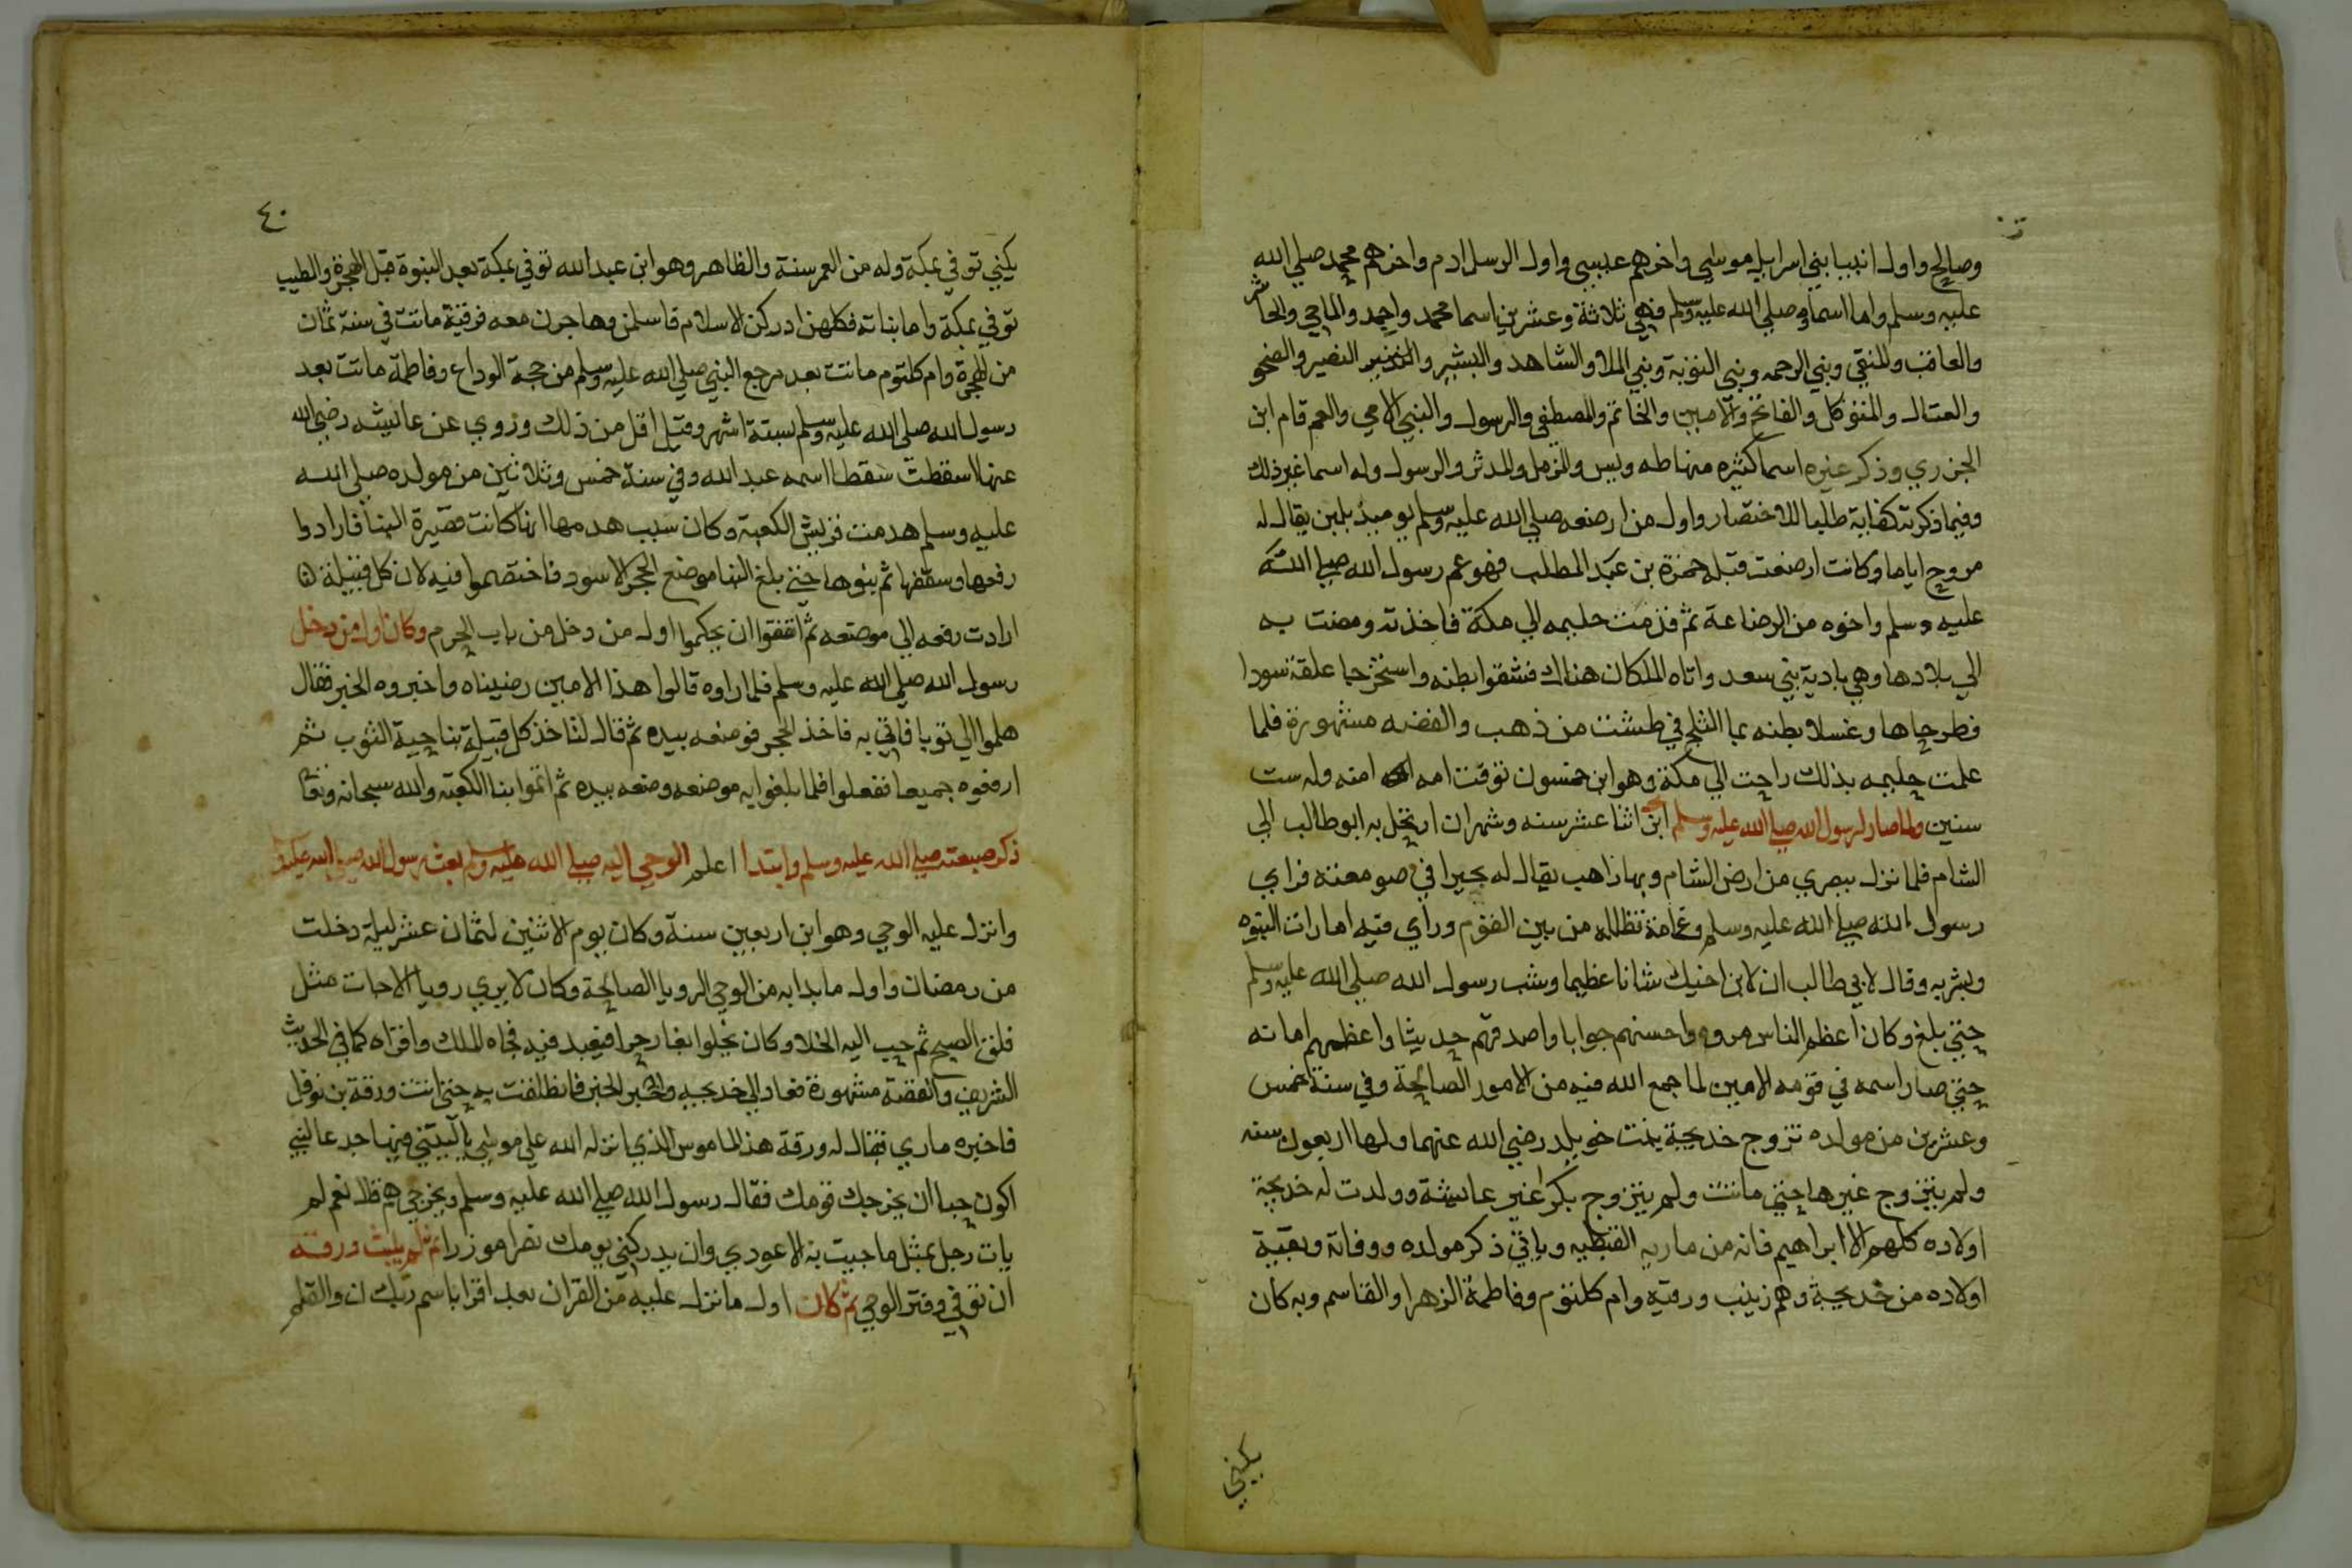 وصالح واول انبيا بني اسرايل موسي واخرهم عيسي واول الرسل ادم واخرهم محمد صلي الله
عليه وسلم واما اسماوه صلي الله عليه وسلم فهي ثلاثة وعشرين اسما محمد واحمد والماحي والحاشر
والعاقب والمقفي ونبي الرحمه ونبي التوبة ونبي الملا والشاهد والبشير والنذير النصير والضحو
والقتال والمتوكل والفاتح والامين والخاتم والمصطفي والرسول والنبي الامي والعم قام ابن
الجزري وذكر غيره اسما كثيره منها طه ويس والمزمل والمدثر والرسول وله اسما غير ذلك
وفيما ذكرته كفاية طلبا للاختصار واول من ارضعه صلي الله عليه وسلم يوميذ بلبن يقال له
مروح اياما وكانت ارضعت قبله حمزة بن عبد المطلب فهو عم رسول الله صلي الله
عليه وسلم واخوه من الرضاعة ثم قدمت حليمه الي مكة فاخذته ومضت به
الي بلادها وهي بادية بني سعد واتاه الملكان هناك فشقوا بطنه واستخرجا علقة سودا
فطرحاها وغسلا بطنه بما الثلج في طشت من ذهب والقصه مشهورة فلما
علمت حليمه بذلك راحت الي مكة وهو ابن خمسون توفت امه امنه وله ست
سنين ولما صار لرسول الله صلي الله عليه وسلم ابن اثنا عشر سنه وشهران ارتحل به ابو طالب الي
الشام فلما نزل ببصري من ارض الشام وبها راهب يقال له بحيرا في صومعته فراي
رسول الله صلي الله عليه وسلم وغمامة تظلله من بين القوم وراي فيه امارات النبوه
وبشر به وقال لابي طالب ان لابن اخيك شانا عظيما وشب رسول الله صلي الله عليه وسلم
حتي بلغ وكان اعظم الناس مروه واحسنهم جوابا واصدقهم حديثا واعظمهم امانه
حتي صار اسمه في قومه الامين لما جمع الله فيه من الامور الصالحة وفي سنة خمس
وعشرين من مولده تزوج خديجة بنت خويلد رضي الله عنهما ولها اربعون سنه
ولم يتزوج غيرها حتي ماتت ولم يتزوج بكرا غير عايشة وولدت له خديجة
اولاده كلهم الا ابراهيم فانه من ماريه القبطيه وياتي ذكر مولده ووفاته وبقية
اولاده من خديجة وهم زينب ورقيه وام كلثوم وفاطمة الزهرا والقاسم وبه كان
يكني
٤٠
يكني توفي بمكة وله من العمر سنة والطاهر وهو ابن عبد الله توفي بمكة بعد النبوة قبل الهجرة والطيب
توفي بمكة واما بناته فكلهن ادركن الاسلام فاسلمن وهاجرن معه فرقية ماتت في سنة ثمان
من الهجرة وام كلثوم ماتت بعد مرجع النبي صلي الله عليه وسلم من حجة الوداع وفاطمة ماتت بعد
رسول الله صلي الله عليه وسلم بستة اشهر وقيل اقل من ذلك وروي عن عايشه رضي الله
عنها اسقطت سقطا اسمه عبد الله وفي سنة خمس وثلاثين من مولده صلي الله
عليه وسلم هدمت قريش الكعبة وكان سبب هدمها انها كانت قصيرة البنا فارادوا
رفعها وسقفها ثم بنوها حتي بلغ البنا موضع الحجر الاسود فاختصموا فيه لان كل قبيلة
ارادت رفعه الي موضعه ثم اتفقوا ان يحكموا اول من دخل من باب الحرم وكان اول من دخل
رسول الله صلي الله عليه وسلم فلما راوه قالوا هذا الامين رضيناه واخبروه الخبر فقال
هلموا الي ثوبا فاتي به فاخذ الحجر فوضعه بيده ثم قال لتاخذ كل قبيلة بناحية الثوب ثم
ارفعوه جميعا ففعلوا فلما بلغوا به موضعه وضعه بيده ثم اتموا بنا الكعبة والله سبحانه وتعا
ذكر مبعثه صلي الله عليه وسلم وابتدا اعلم الوحي اليه صلي الله عليه وسلم بعث رسول الله صلي الله عليه و
وانزل عليه الوحي وهو ابن اربعين سنة وكان يوم الاثنين لثمان عشر ليلة دخلت
من رمضان واول ما بدا به من الوحي الرويا الصالحة وكان لا يري رويا الا جات مثل
فلق الصبح ثم حبب اليه الخلا وكان يخلوا بغار حرا فيعبد فيه فجاه الملك واقراه كما في الحديث
الشريف والقصة مشهورة فعاد الي خديجه واخبر الخبر فانطلقت به حتي اتت ورقة بن نوفل
فاخبره ما راي فقال له ورقة هذا الناموس الذي انزله الله علي موسي ياليتني فيها جدعا ليتني
اكون حيا ان يخرجك قومك فقال رسول الله صلي الله عليه وسلم ويخرجي هم قال نعم لم
يات رجل بمثل ما جيت به الا عودي وان يدركني يومك نصرا موزرا ثم لم يلبث ورقه
ان توفي وفتر الوحي ثم كان اول ما نزل عليه من القران بعد اقرا باسم ربك ن والقلم